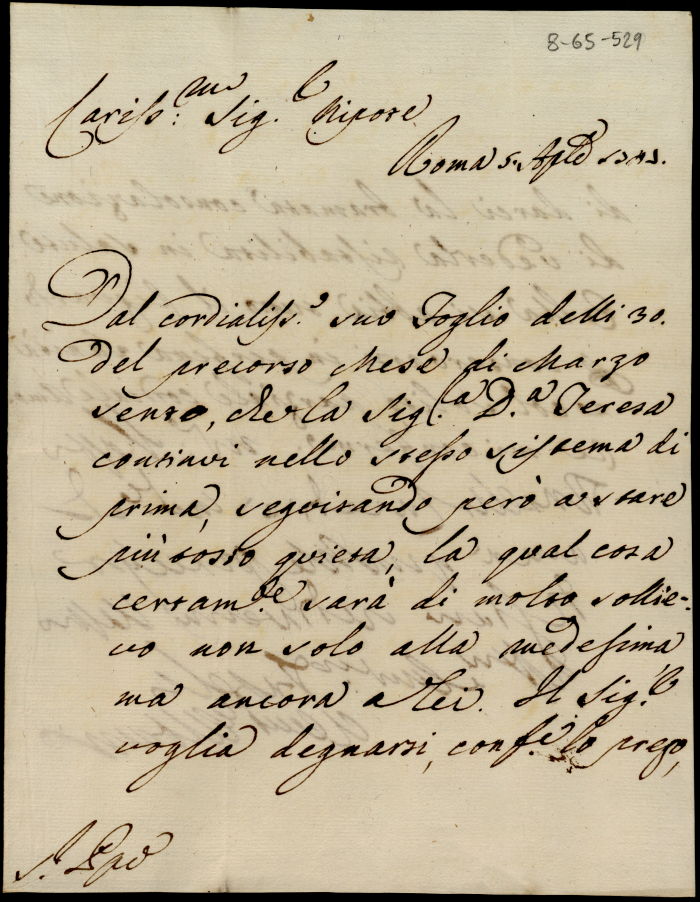 8-65-529
Cariss:mo Sig.e Nipote
Roma 5. Aple
Dal cordialiss.o suo Foglio delli 30.
del precorso Mese di Marzo
sento, che la Sig.a D.a Teresa
continui nello stesso sistema di
prima, seguitando però a stare
più tosto quieta, la qual cosa
certam.te sarà di molto sollie-
vo non solo alla medesima
ma ancora a Lei. Il Sig.e
voglia degnarsi, conf.e lo prego,